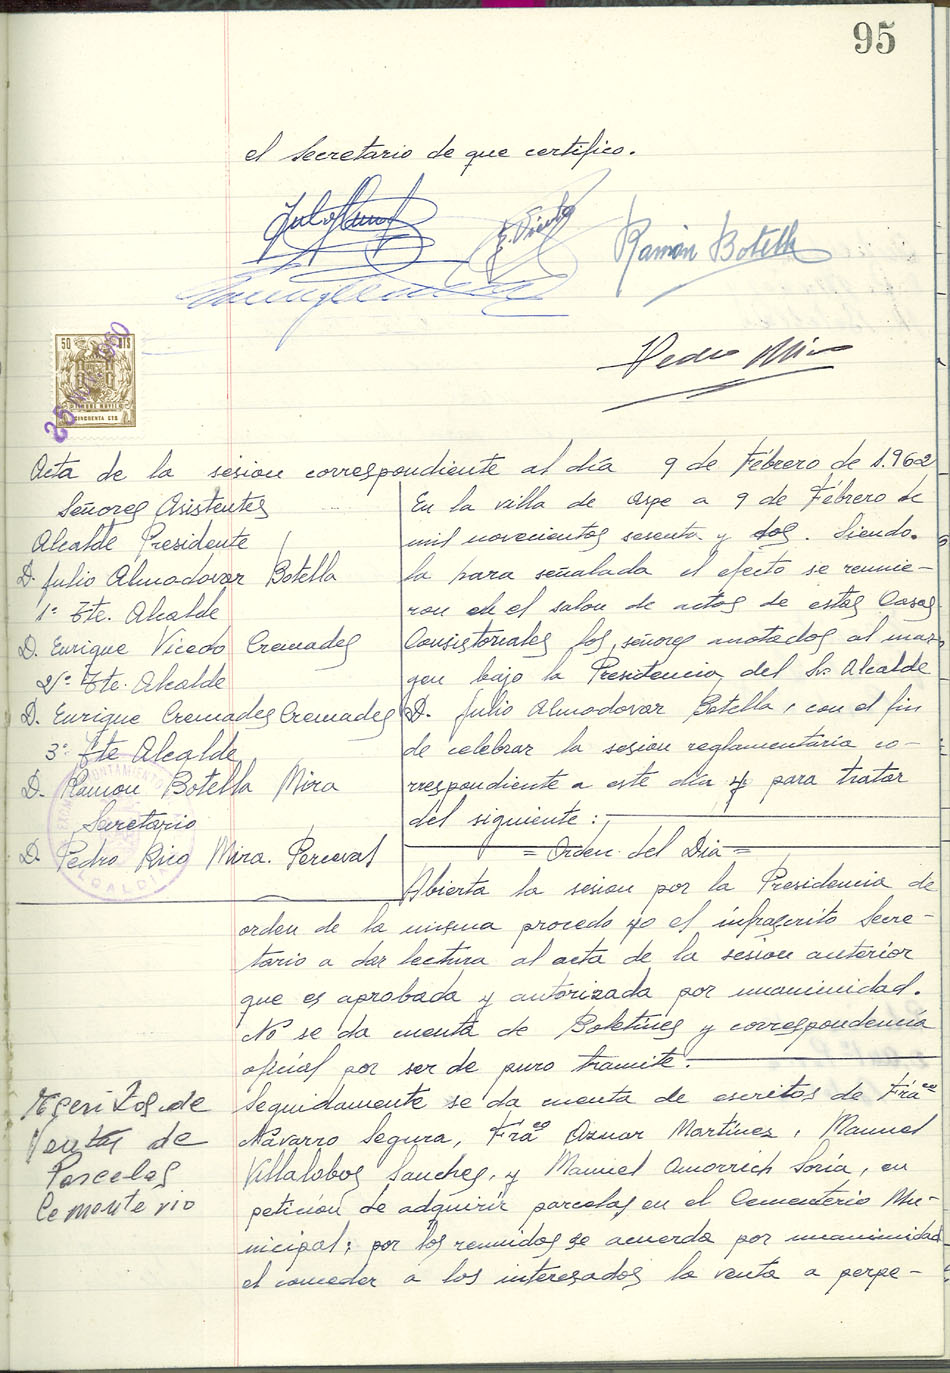 95
el Secretario de que certifico.
E. Vicedo
Ramón Botella
Pedro Rico
50 CTS
CINCUENTA CTS
Acta de la sesion correspondiente al día 9 de Febrero de 1.962
Señores Asistentes
Alcalde Presidente
D. Julio Almodovar Botella
1º Tte. Alcalde
D. Enrique Vicedo Cremades
2º Tte. Alcalde
D. Enrique Cremades Cremades
3º Tte Alcalde
D. Ramon Botella Mira
Secretario
D. Pedro Rico Mira. Perceval
ALCALDIA
En la villa de Aspe a 9 de Febrero de
mil novecientos sesenta y dos. Siendo
la hora señalada el efecto se reunie-
ron en el salon de actos de estas Casas
Consistoriales los señores anotados al mar-
gen bajo la Presidencia del Sr. Alcalde
D. Julio Almodovar Botella, con el fin
de celebrar la sesion reglamentaria co-
rrespondiente a este día y para tratar
del siguiente:
= Orden del Dia =
Abierta la sesion por la Presidencia de
orden de la misma procedo yo el infrascrito Secre-
tario a dar lectura al acta de la sesion anterior
que es aprobada y autorizada por unanimidad.
No se da cuenta de Boletines y correspondencia
oficial por ser de puro tramite.
Escritos de
Ventas de
Parcelas
Cementerio
Seguidamente se da cuenta de escritos de Frãco
Navarro Segura, Frãco Aznar Martínez, Manuel
Villalobos Sanchez, y Manuel Amorrich Soria, en
petición de adquirir parcelas en el Cementerio Mu-
nicipal; por los reunidos se acuerda por unanimidad
el conceder a los interesados la venta a perpe-